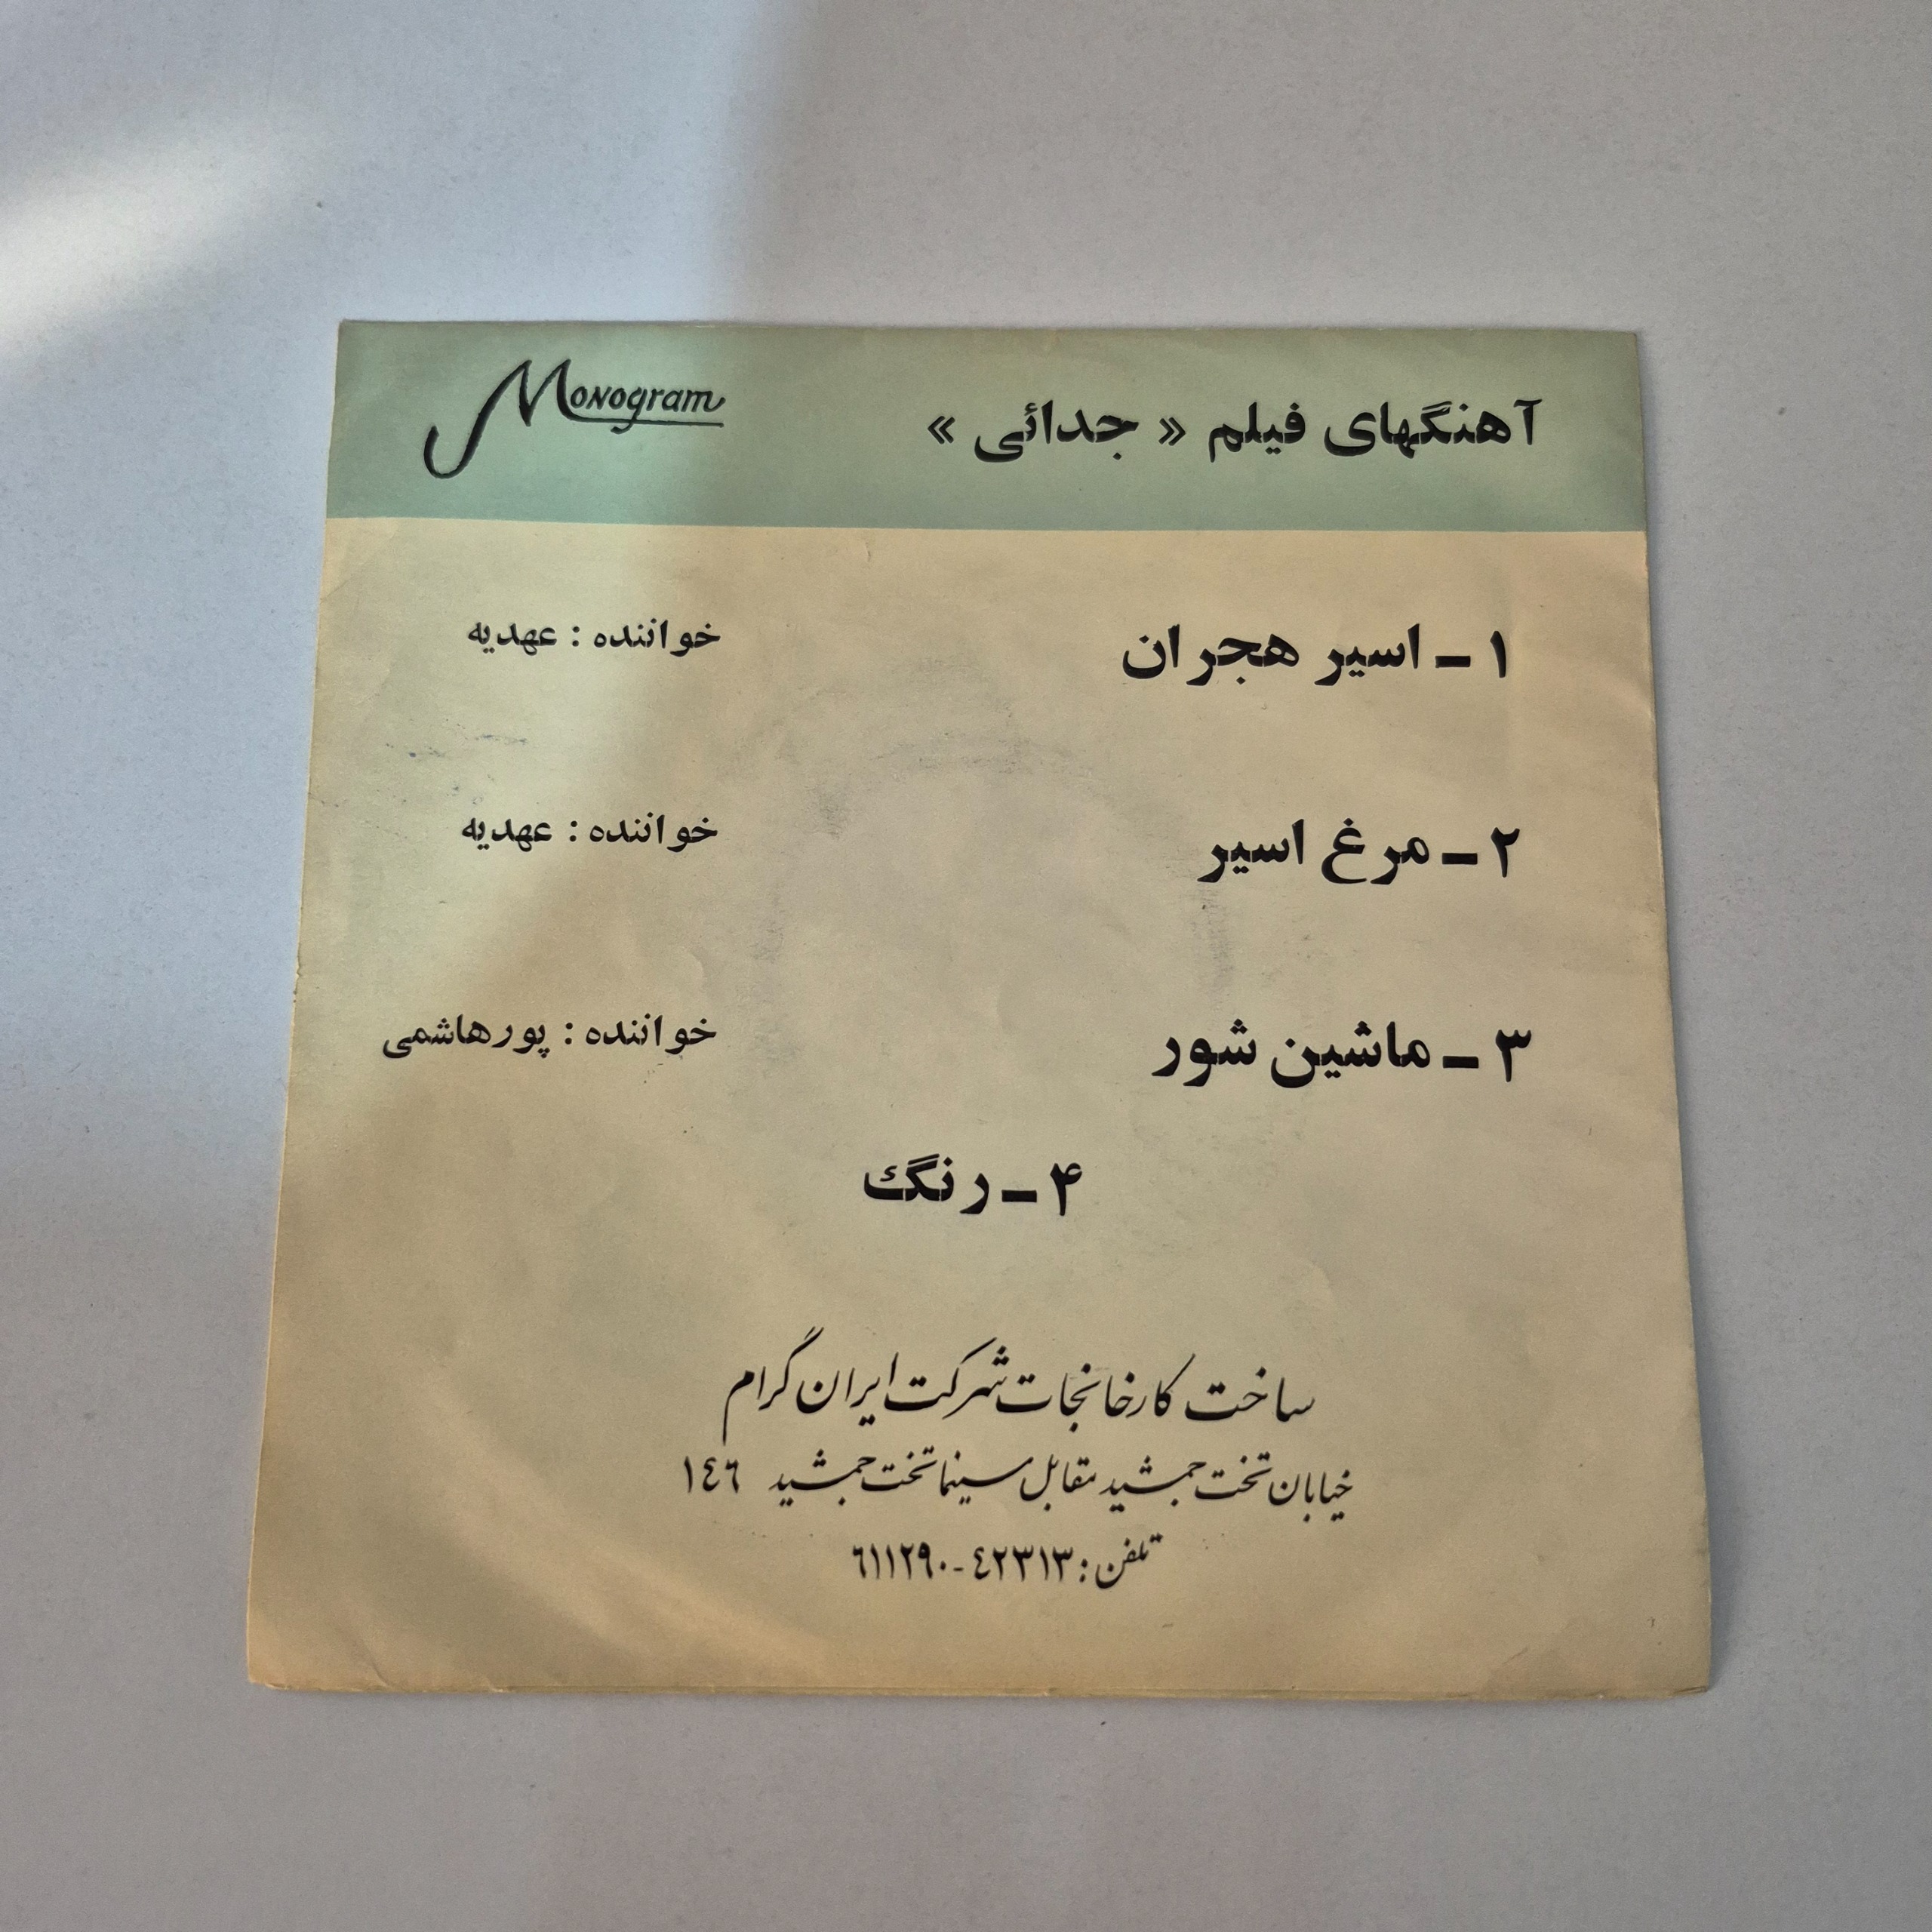 آهنگهای فیلم « جدائی »
Monogram
۱ ـ اسیر هجران
خواننده : عهدیه
۲ ـ مرغ اسیر
خواننده : عهدیه
۳ ـ ماشین شور
خواننده : پورهاشمی
۴ ـ رنگ
ساخت کارخانجات شرکت ایران گرام
خیابان تخت جمشید مقابل سینما تخت جمشید ١٤٦
تلفن : ٤٢٣١٣ - ٦١١٢٩٠